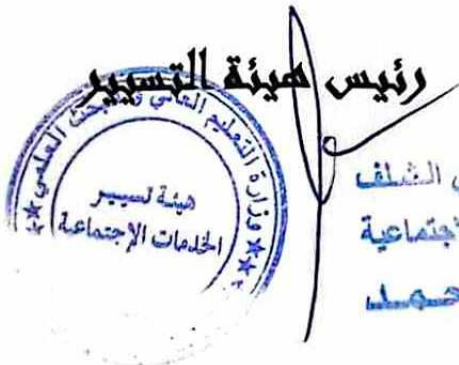 رئيس هيئة التسيير
وزارة التعليم العالي والبحث العلمي
هيئة تسيير
الخدمات الإجتماعية
الشلف